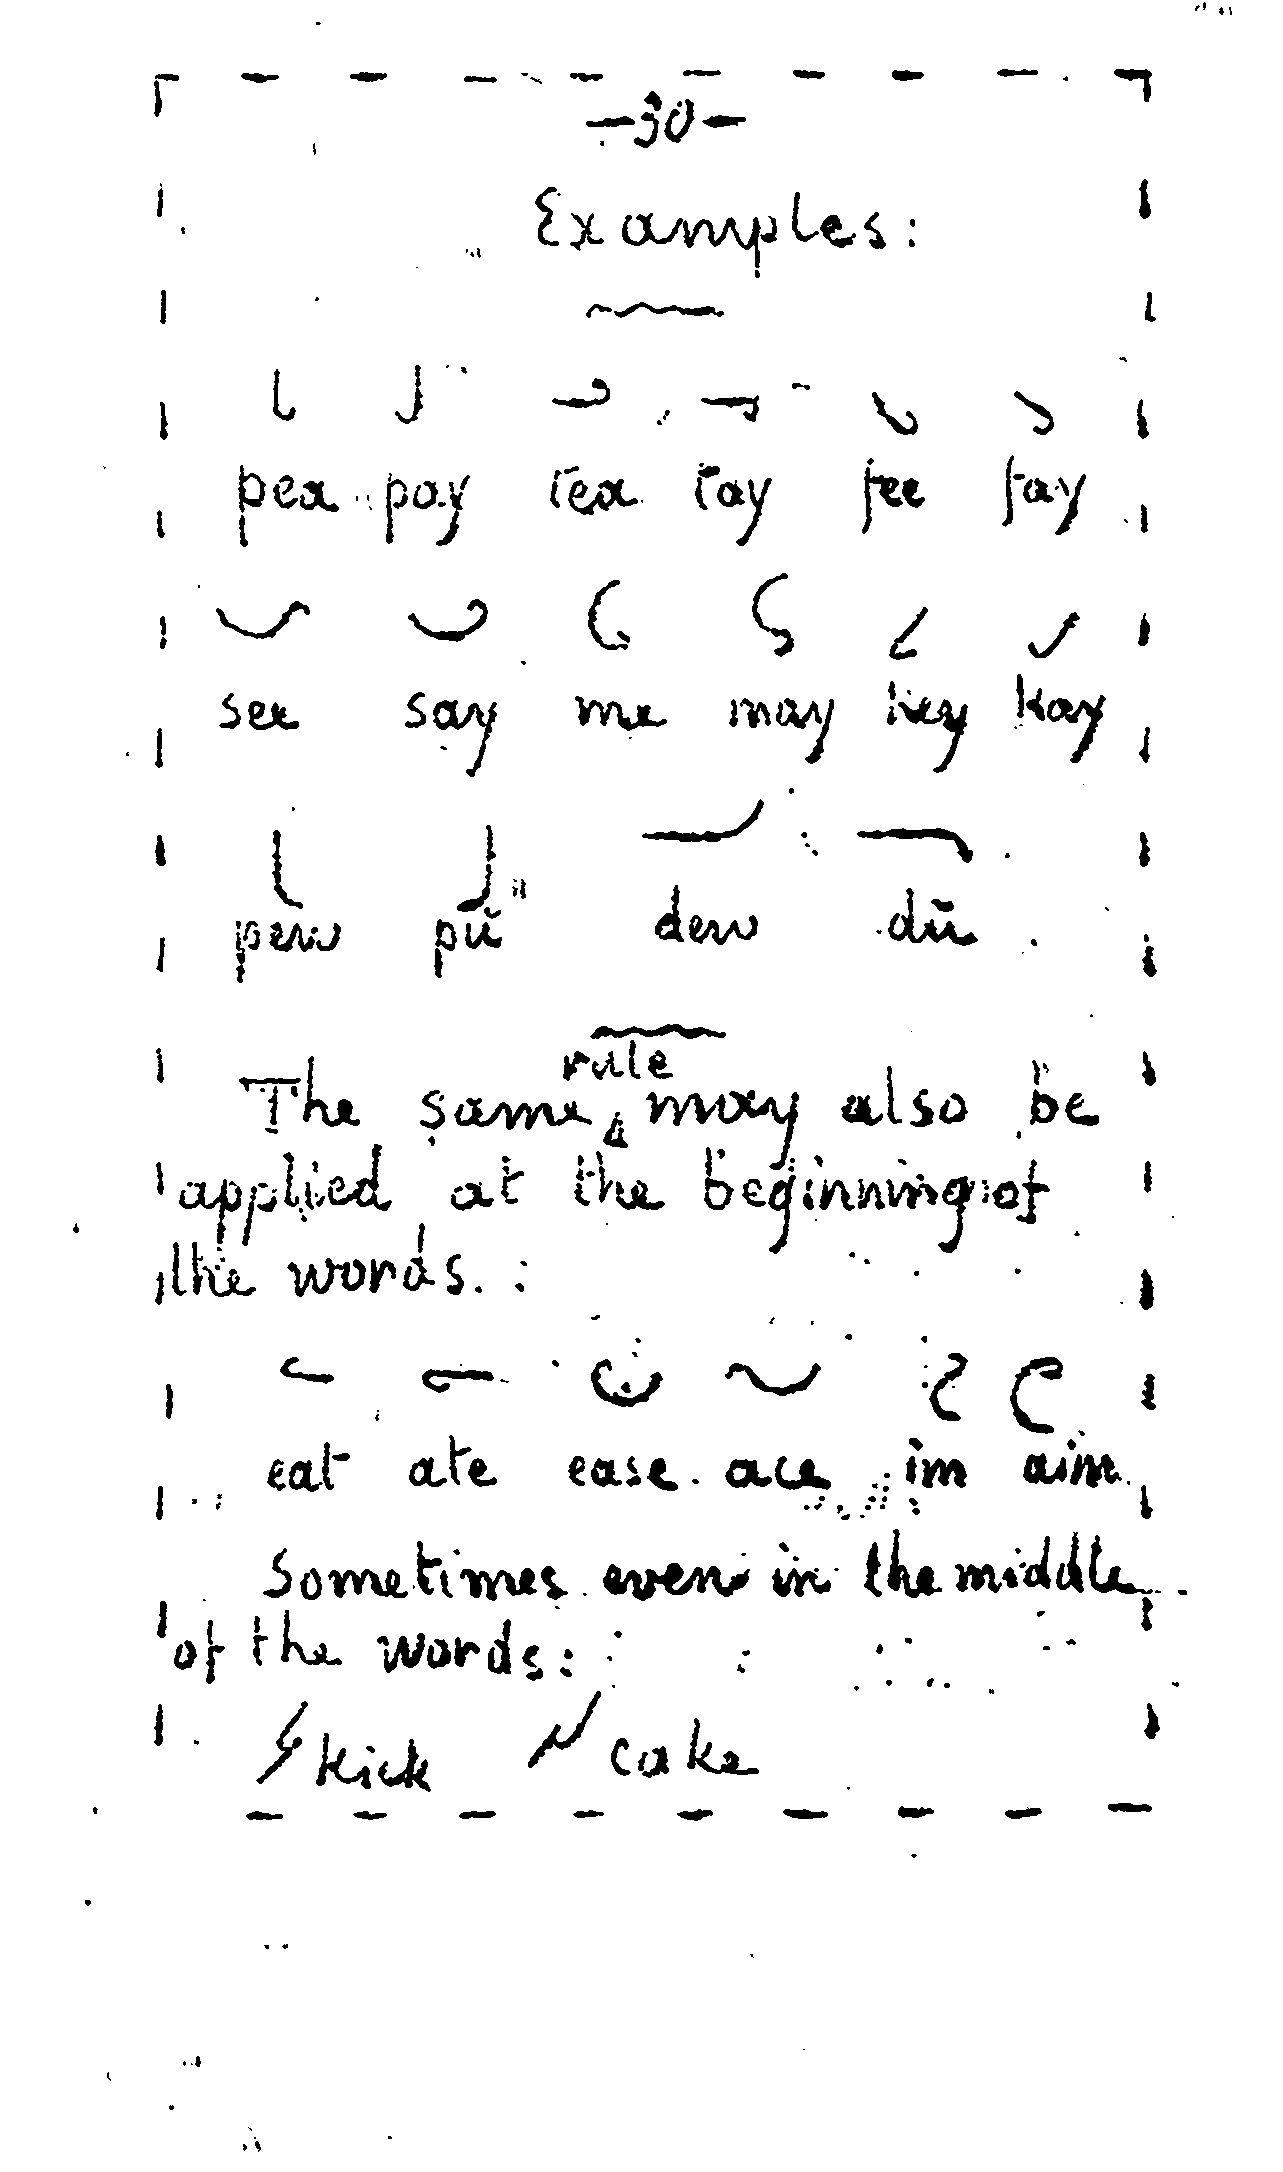 -30-
Examples:
pea pay tea tay fee fay
see say me may key kay
pew pŭ dew dū
The same rule may also be
applied at the beginning of
the words. :
eat ate ease ace im aim
Sometimes even in the middle
of the words:
kick cake